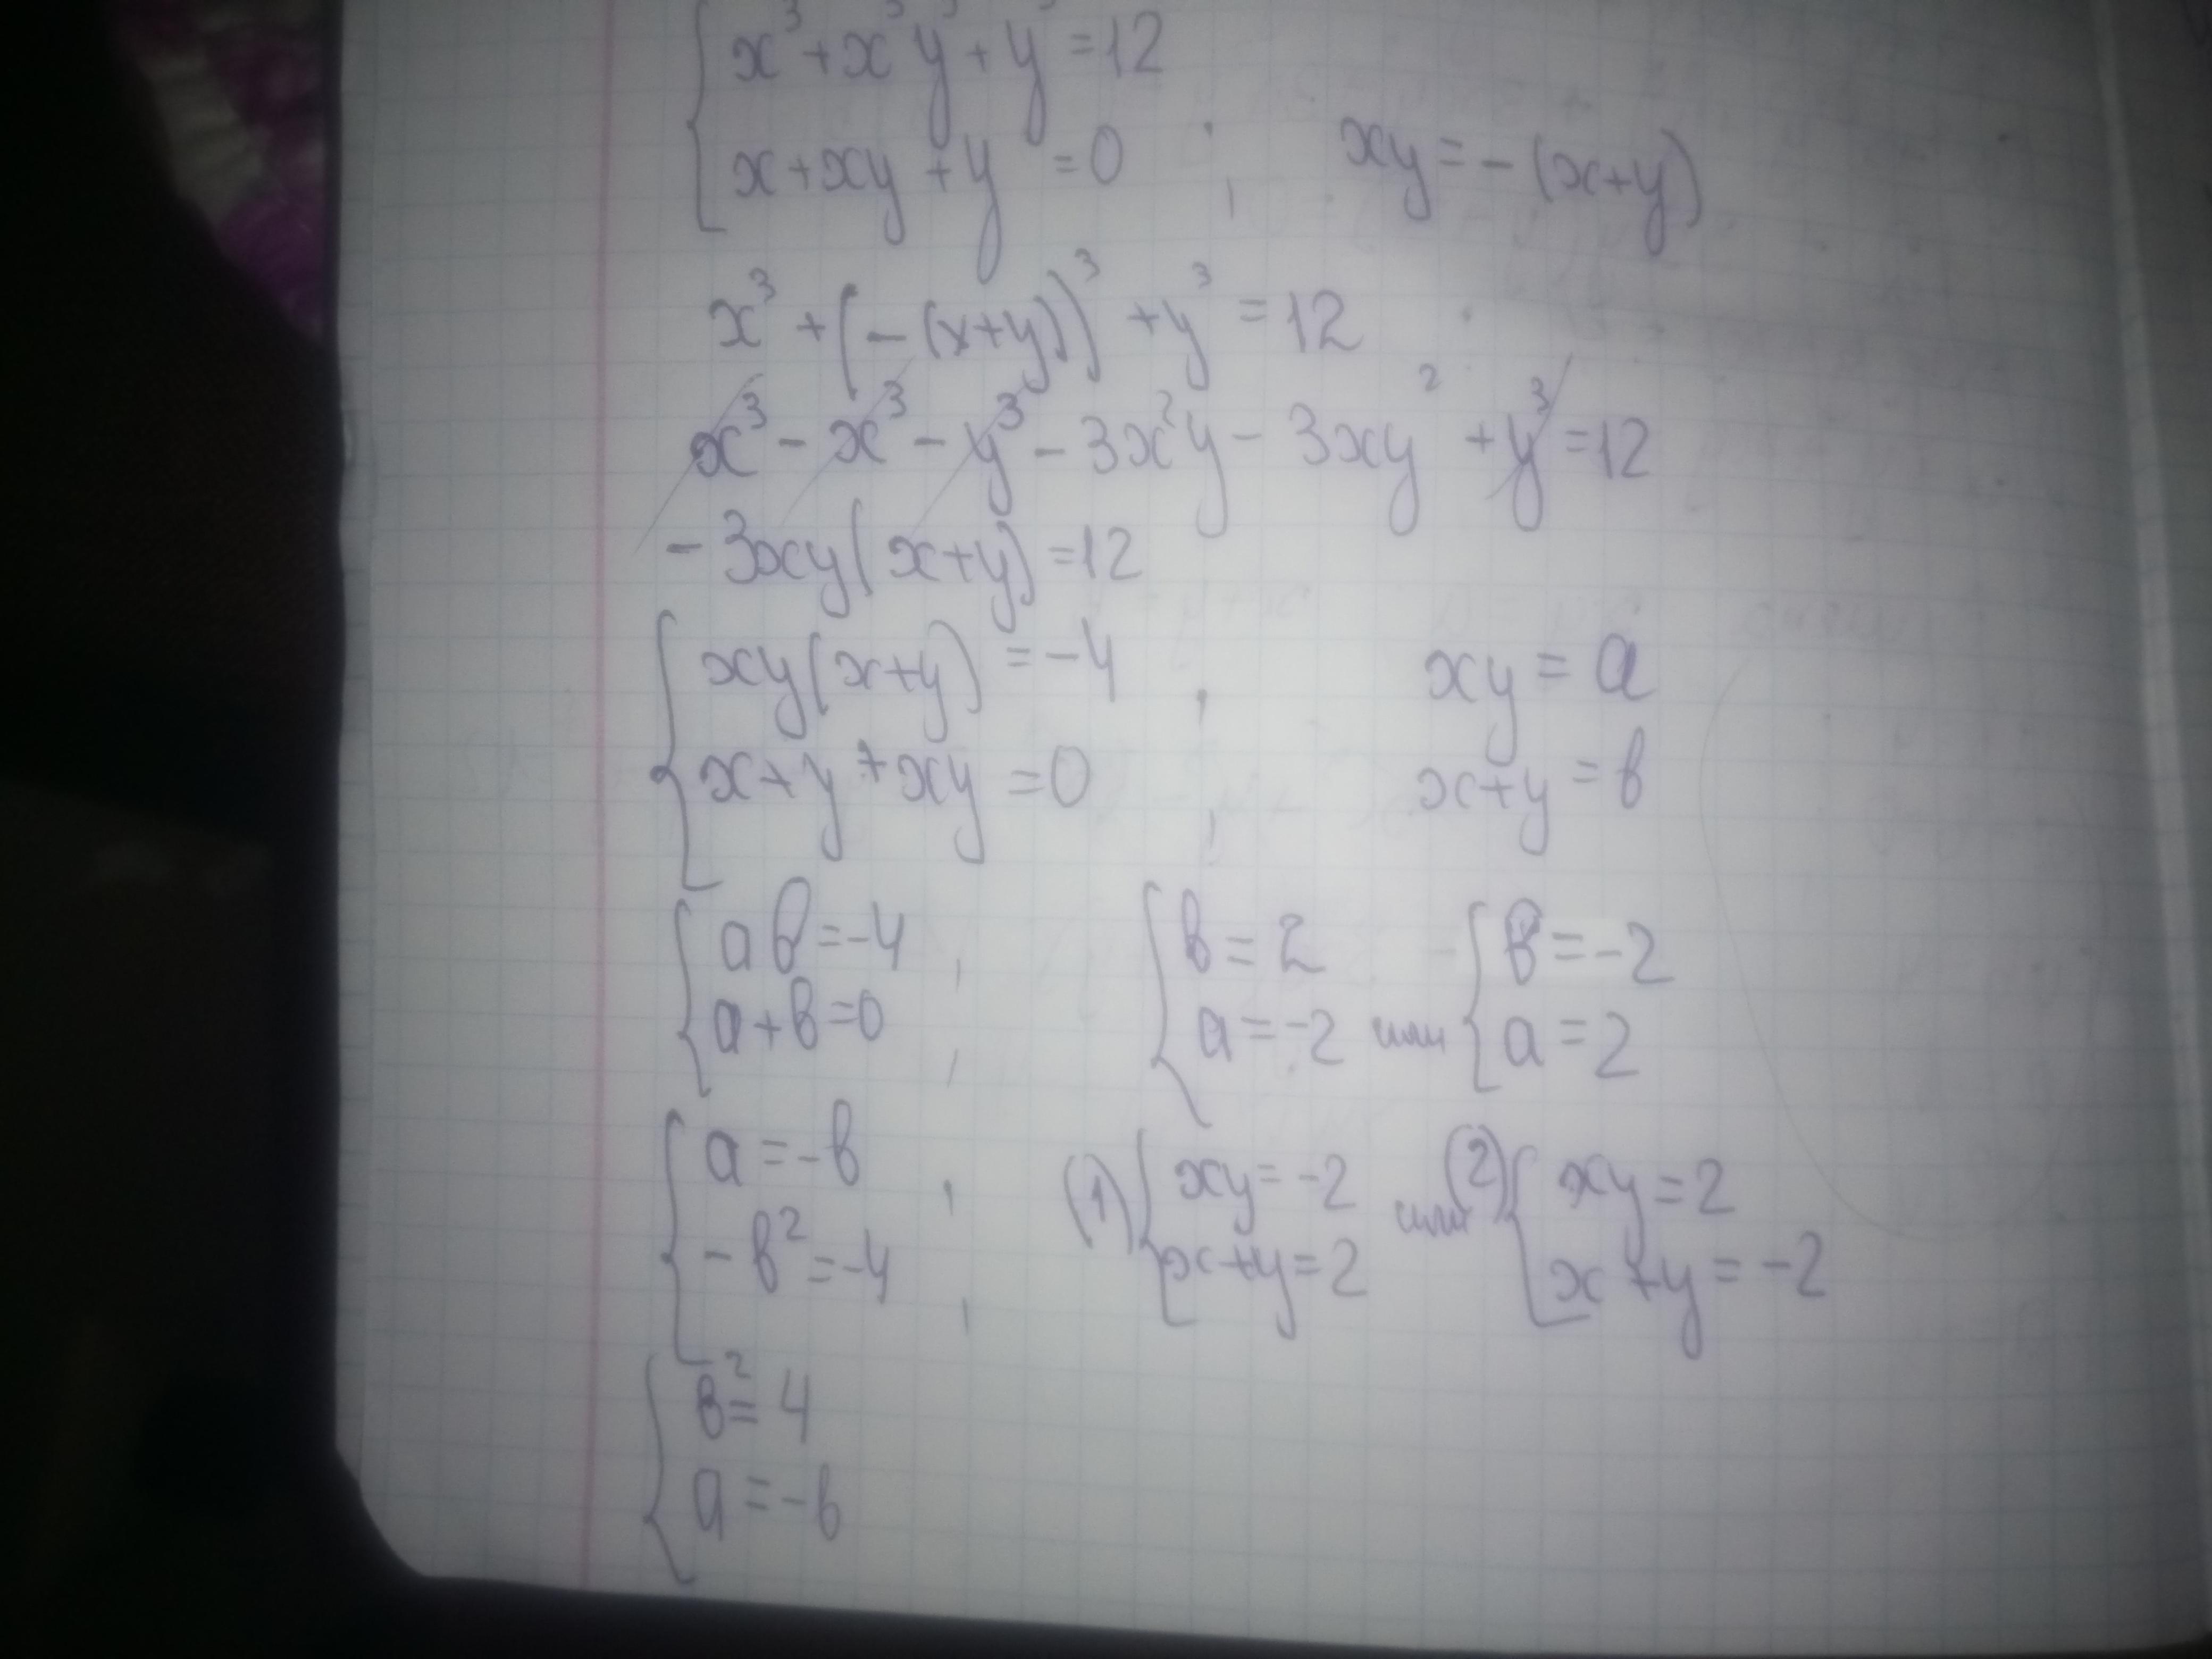 x³+x³y³+y³=12
x+xy+y=0; xy=-(x+y)
x³+(-(x+y))³+y³=12
x³-x³-y³-3x²y-3xy²+y³=12
-3xy(x+y)=12
xy(x+y)=-4, xy=a
x+y+xy=0; x+y=в
ав=-4
а+в=0;
в=2
а=-2
или
в=-2
а=2
а=-в
-в²=-4;
(1) xy=-2
x+y=2
или
(2) xy=2
x+y=-2
в²=4
а=-в